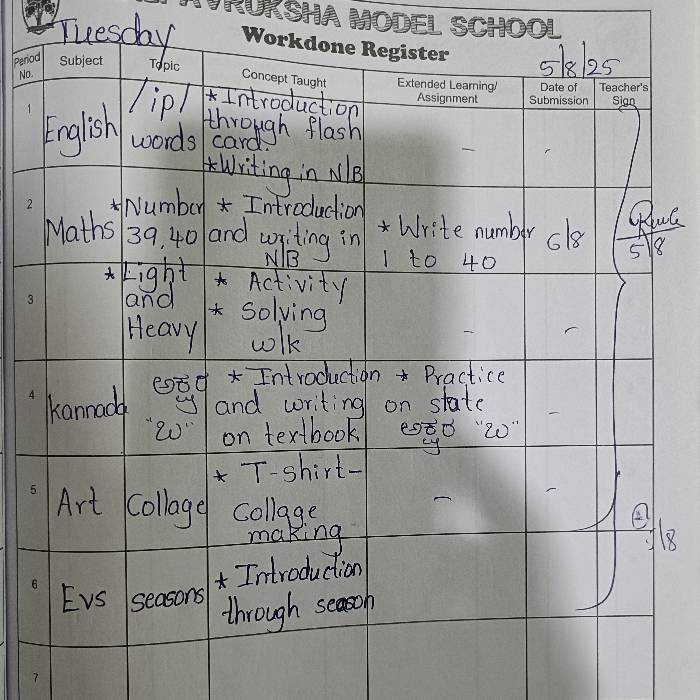 MODEL SCHOOL
Workdone Register
Tuesday
5/8/25
Period No.
Subject
Topic
Concept Taught
Extended Learning/ Assignment
Date of Submission
Teacher's Sign
1
English
/ip/ words
* Introduction
through flash
card.
* Writing in N/B
–
-
2
Maths
* Number
39,40
* Introduction
and writing in
N/B
* Write number
1 to 40
6/8
5/8
3
* Light
and
Heavy
* Activity
* Solving
w/k
–
–
4
kannada
ಅಕ್ಷರ
* Introduction
and writing
on textbook
* Practice
on state
ಅಕ್ಷರ
–
5
Art
Collage
* T-shirt-
Collage
making
–
–
6
Evs
seasons
* Introduction
through season
7